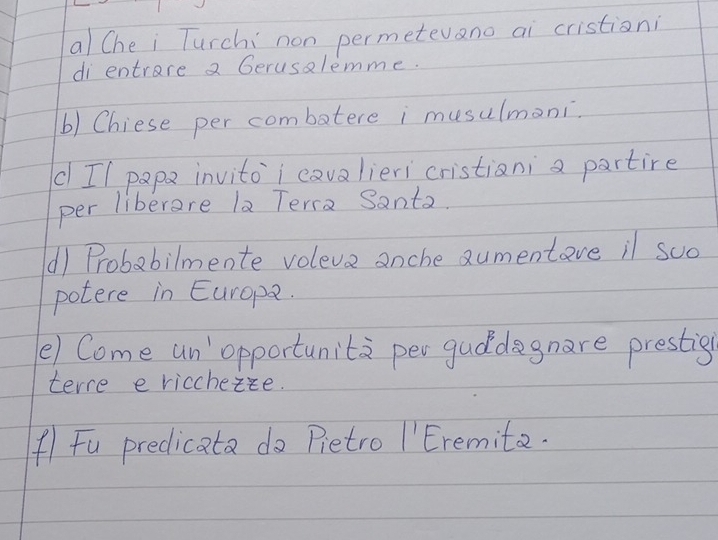 a) Che i Turchi non permetevano ai cristiani
di entrare a Gerusalemme.
b) Chiese per combatere i musulmani.
c) Il papa invitò i cavalieri cristiani a partire
per liberare la Terra Santa.
d) Probabilmente voleva anche aumentare il suo
potere in Europa.
e) Come un'opportunità per guaddagnare prestigi
terre e ricchezze.
f) Fu predicata da Pietro l'Eremita.